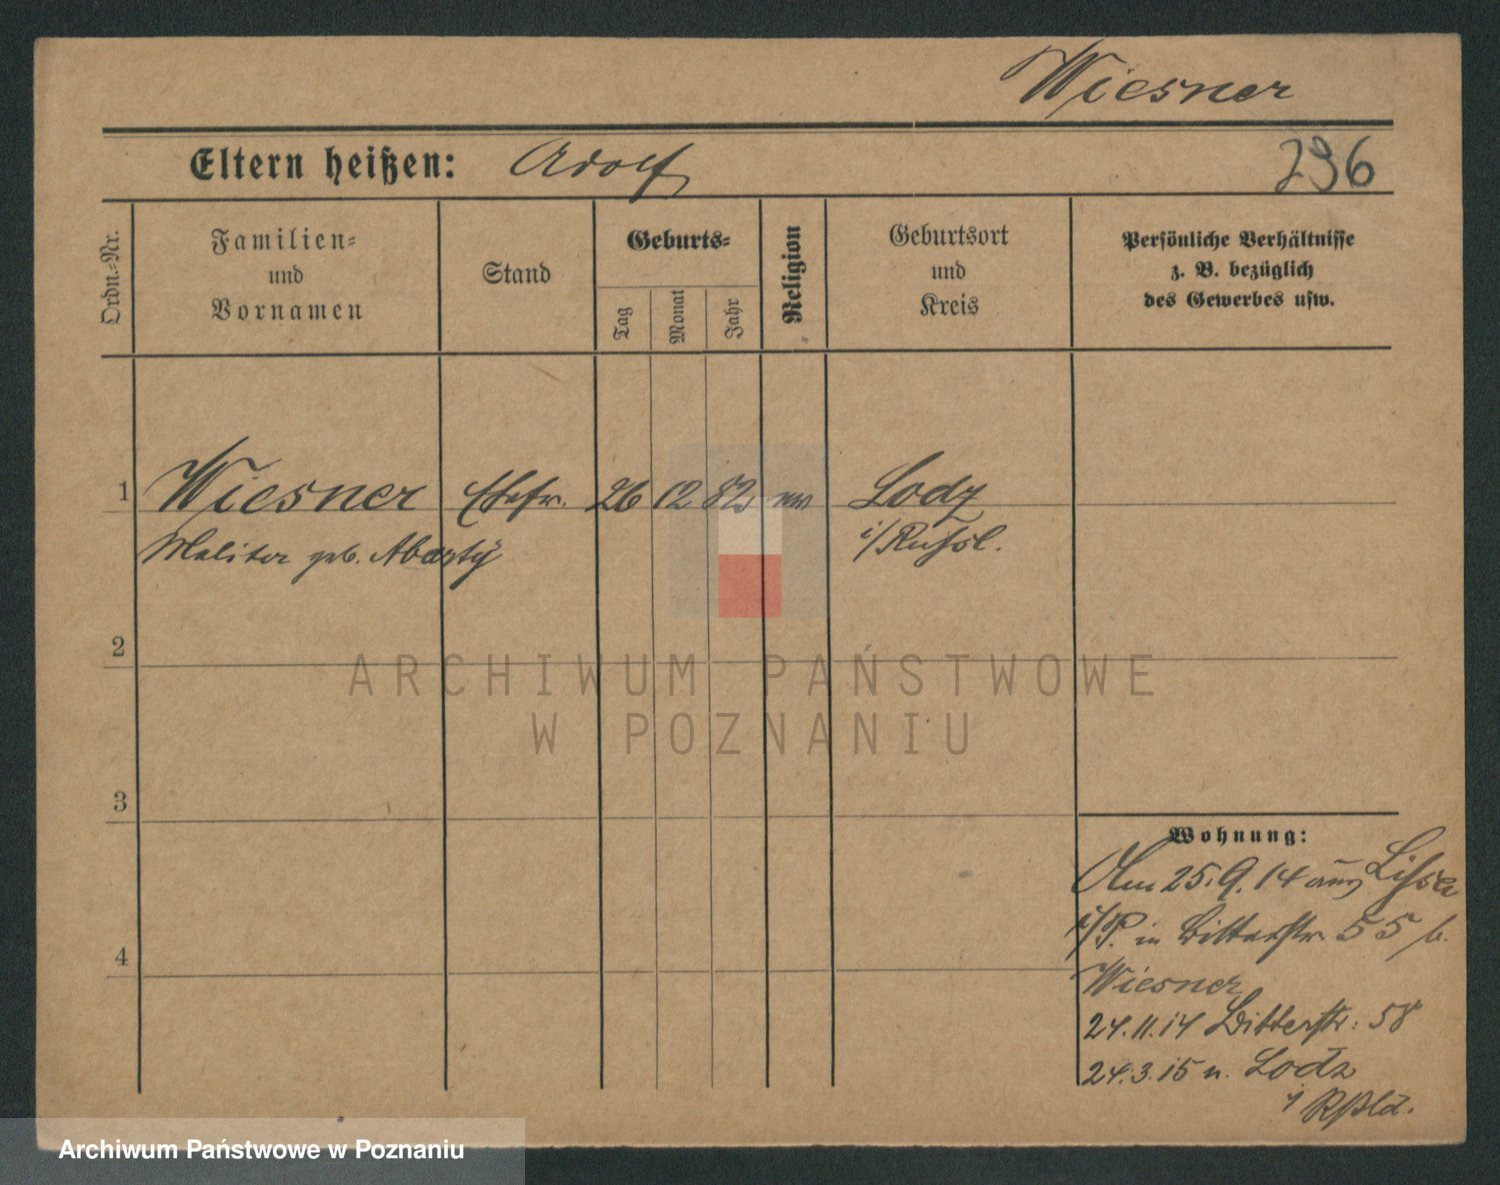 Wiesner
Eltern heißen: Adolf
296
Ordn.-Nr.
Familien- und Vornamen
Stand
Geburts-
Tag
Monat
Jahr
Religion
Geburtsort und Kreis
Persönliche Verhältnisse
z. B. bezüglich
des Gewerbes usw.
1 Wiesner Ehefr. 26 12 82 Lodz
geb. i/Russl.
2
ARCHIWUM PAŃSTWOWE
W POZNANIU
3
Wohnung:
25.9.14 aus Lissa
i/P. in Bitterstr. 55 b.
4
Wiesner
24.11.14 Bitterstr. 58
24.3.15 n. Lodz
i Rßld.
Archiwum Państwowe w Poznaniu